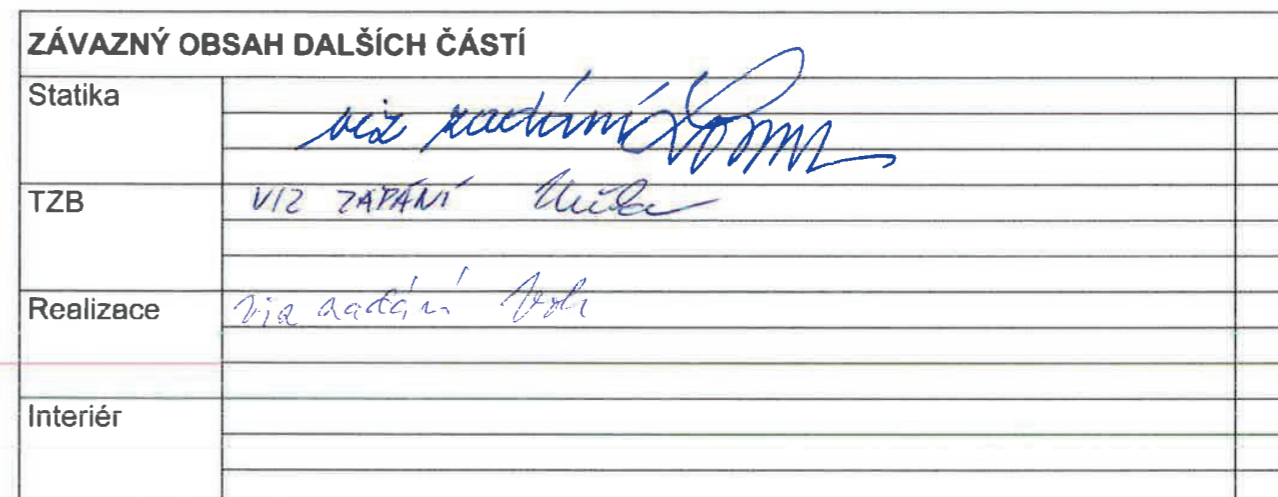 ZÁVAZNÝ OBSAH DALŠÍCH ČÁSTÍ
Statika
viz zadání
TZB
VIZ ZADÁNÍ
Realizace
viz zadání
Interiér